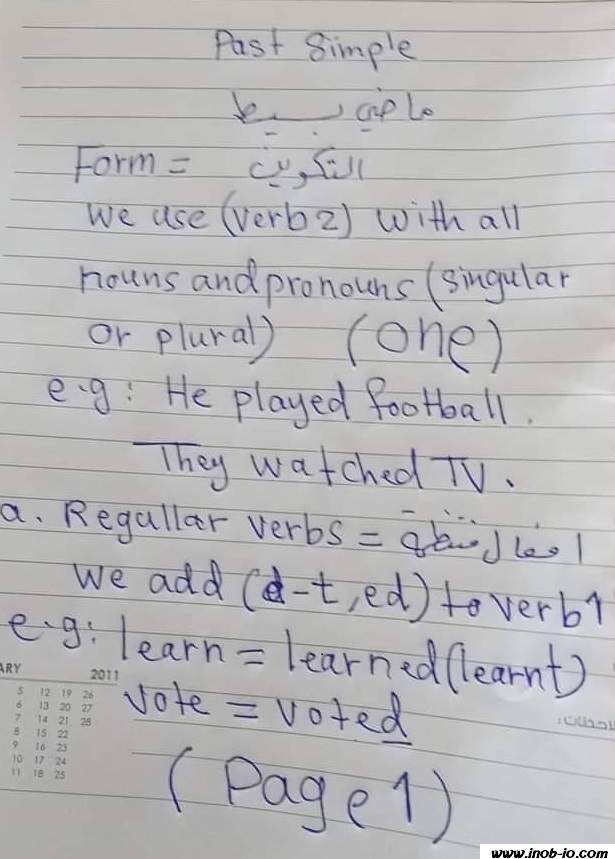 Past Simple
ماضي بسيط
Form = التكوين
We use (verb 2) with all
nouns and pronouns (singular
or plural) (one)
e.g: He played football.
They watched TV.
a. Regullar verbs = افعال منتظمة
We add (d-t, ed) to verb 1
e.g: learn = learned (learnt)
ARY 2011
vote = voted
5 12 19 26
6 13 20 27
7 14 21 28
8 15 22
9 16 23
10 17 24
11 18 25
(Page 1)
www.inob-io.com